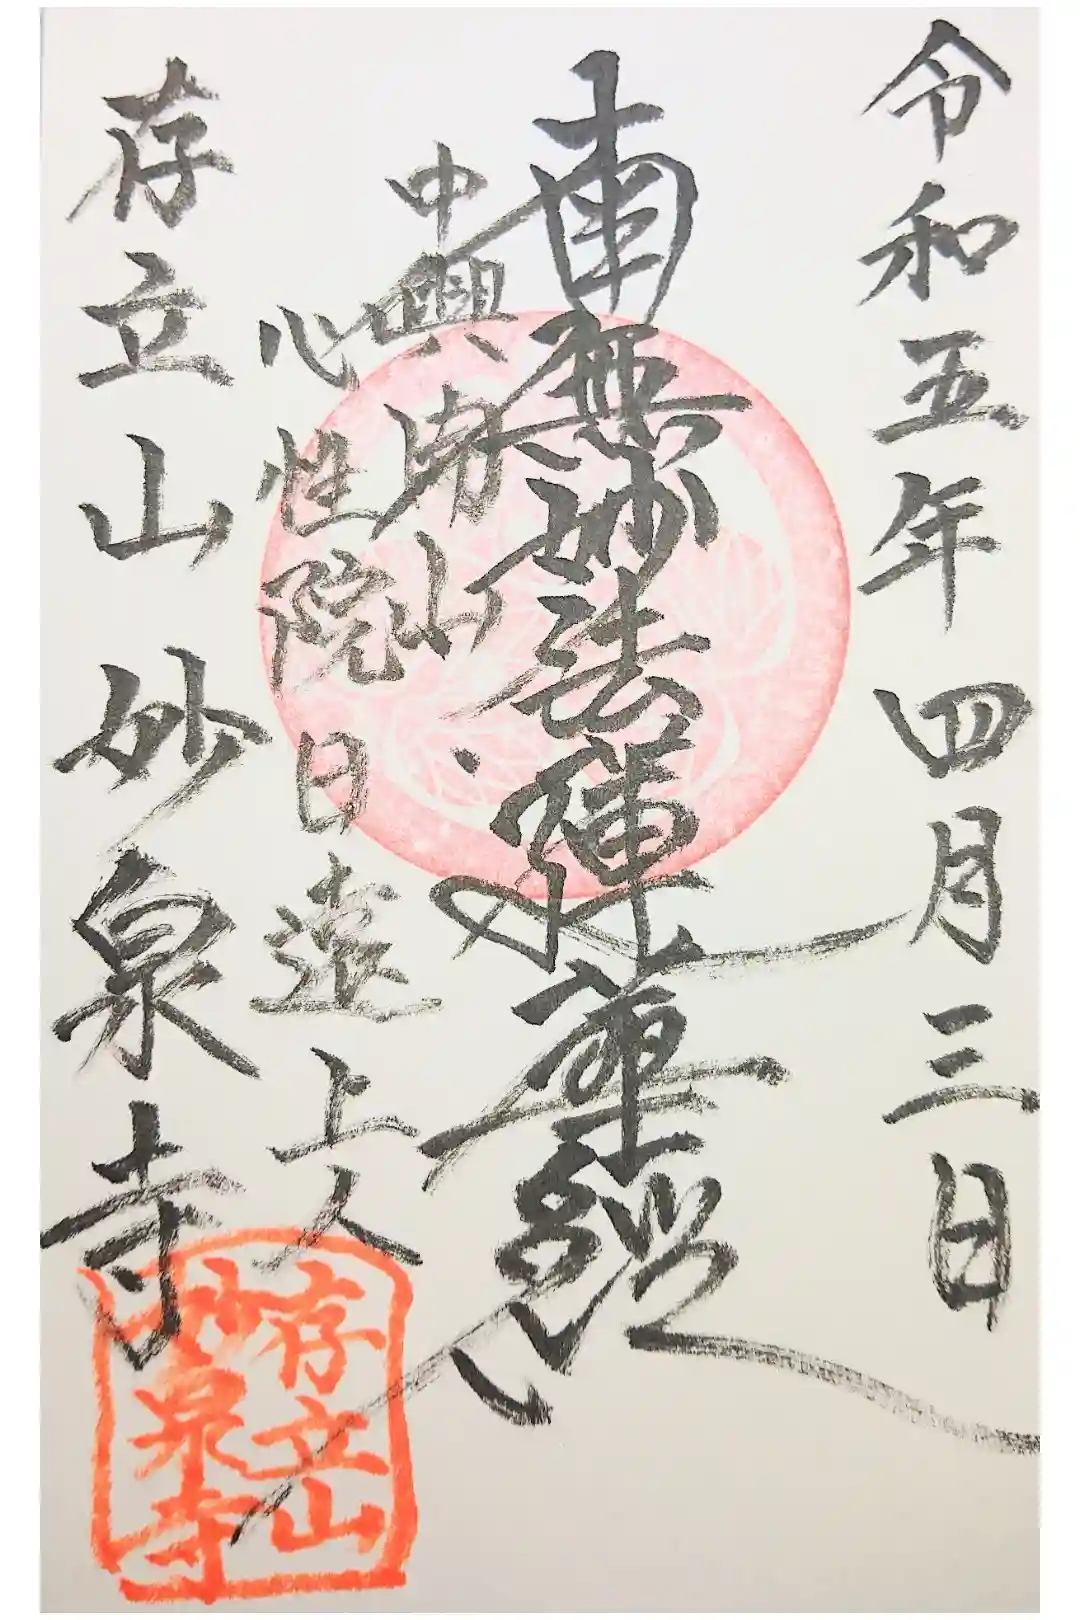 令和五年四月三日
南無妙法蓮華経
中興開山
心性院日遠上人
存立山妙泉寺
存立山
妙泉寺